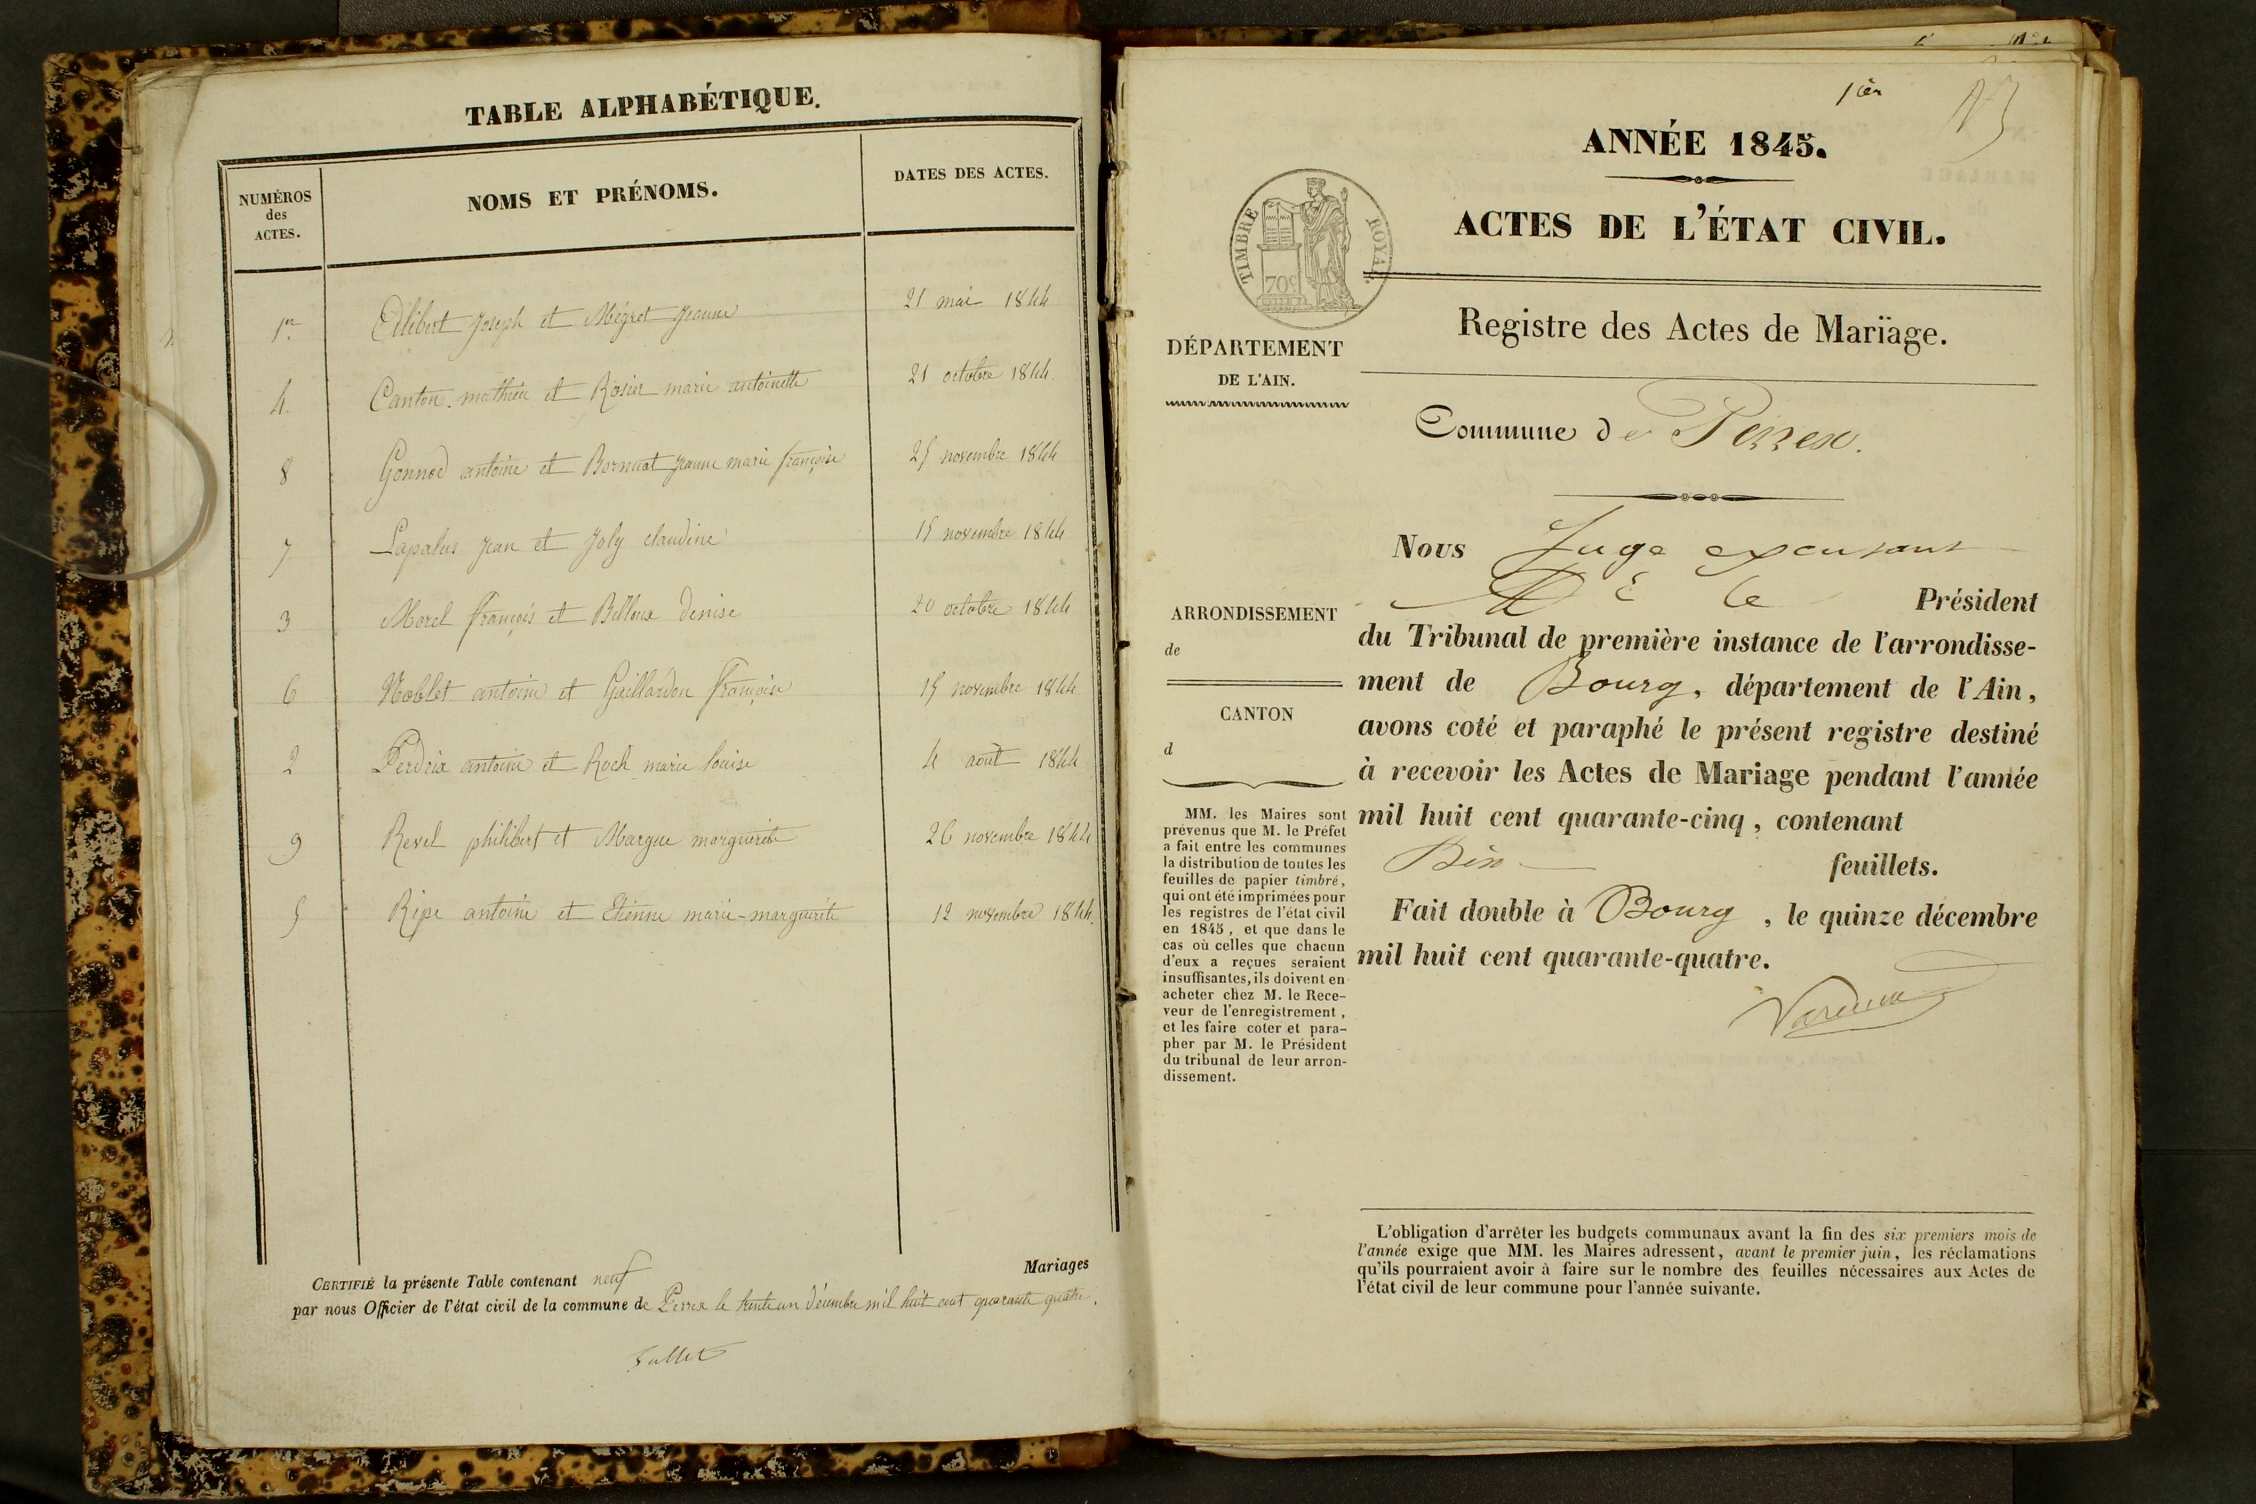 TABLE ALPHABÉTIQUE.
NUMÉROS
des
ACTES.
NOMS ET PRÉNOMS.
DATES DES ACTES.
1er Edilbert Joseph et Mégret Jeanne 21 mai 1844
4. Canton mathieu et Rosier marie antoinette 21 octobre 1844.
8 Gonnod antoine et Bornuat jeanne marie françoise 25 novembre 1844
7 Lapalus jean et Joly claudine 15 novembre 1844
3 Morel françois et Belloux denise 20 octobre 1844
6 Noblet antoine et Gaillardon françoise 15 novembre 1844
2 Perdrix antoine et Roch marie louise 4 août 1844
9 Revel philibert et Margue marguerite 26 novembre 1844
5 Ripe antoine et Etienne marie-marguerite 12 novembre 1844.
CERTIFIÉ la présente Table contenant neuf Mariages
par nous Officier de l'état civil de la commune de Perrex le trente un décembre mil huit cent quarante quatre.
1er
ANNÉE 1845.
ACTES DE L'ÉTAT CIVIL.
TIMBRE ROYAL
70c
Registre des Actes de Marïage.
DÉPARTEMENT
DE L'AIN.
Commune de Perrex.
ARRONDISSEMENT
de
CANTON
d
MM. les Maires sont
prévenus que M. le Préfet
a fait entre les communes
la distribution de toutes les
feuilles de papier timbré,
qui ont été imprimées pour
les registres de l'état civil
en 1845, et que dans le
cas où celles que chacun
d'eux a reçues seraient
insuffisantes, ils doivent en
acheter chez M. le Rece-
veur de l'enregistrement,
et les faire coter et para-
pher par M. le Président
du tribunal de leur arron-
dissement.
Nous Juge
le Président
du Tribunal de première instance de l'arrondisse-
ment de Bourg, département de l'Ain,
avons coté et paraphé le présent registre destiné
à recevoir les Actes de Mariage pendant l'année
mil huit cent quarante-cinq, contenant
feuillets.
Fait double à Bourg, le quinze décembre
mil huit cent quarante-quatre.
L'obligation d'arrêter les budgets communaux avant la fin des six premiers mois de
l'année exige que MM. les Maires adressent, avant le premier juin, les réclamations
qu'ils pourraient avoir à faire sur le nombre des feuilles nécessaires aux Actes de
l'état civil de leur commune pour l'année suivante.